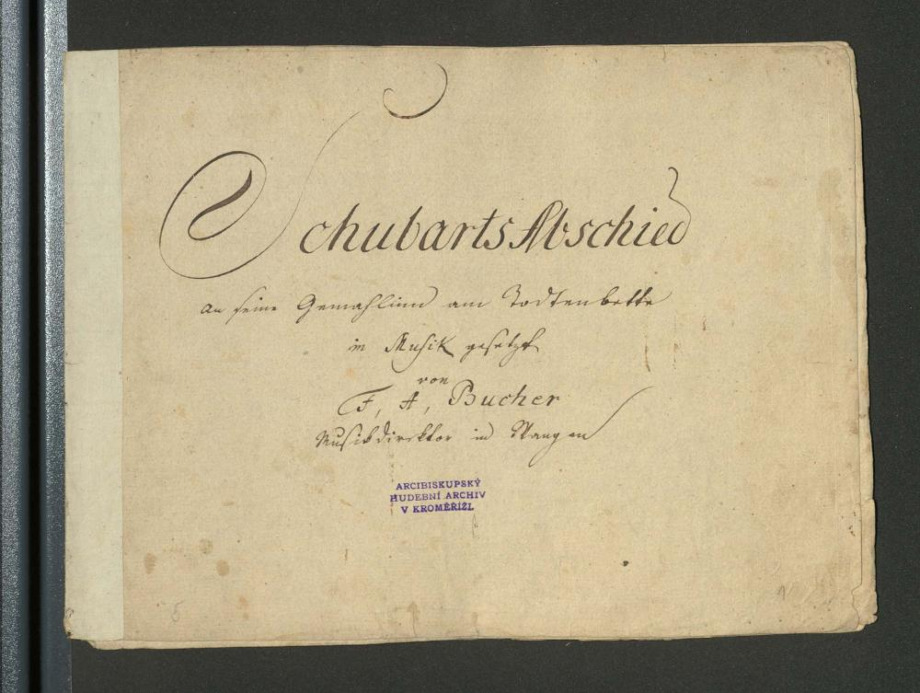 Schubarts Abschied
an seine Gemahlinn am Todtenbette
in Musik gesetzt
von
F, A, Bucher
Musikdirektor in Wangen
ARCIBISKUPSKÝ
HUDEBNÍ ARCHIV
V KROMĚŘÍŽI.